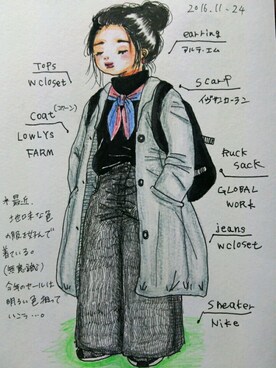 2016.11-24
earring
アルテ・エム
Tops
wcloset
scarf
イヴサンローラン
Coat(コクーン)
LOWLYS
FARM
Ruck
sack
GLOBAL
WORK
jeans
wcloset
sneater
Nike
*最近、
地味な色
の服好んで
着ている。
(無意識)
今年のセールは
明るい色狙って
いこう…。